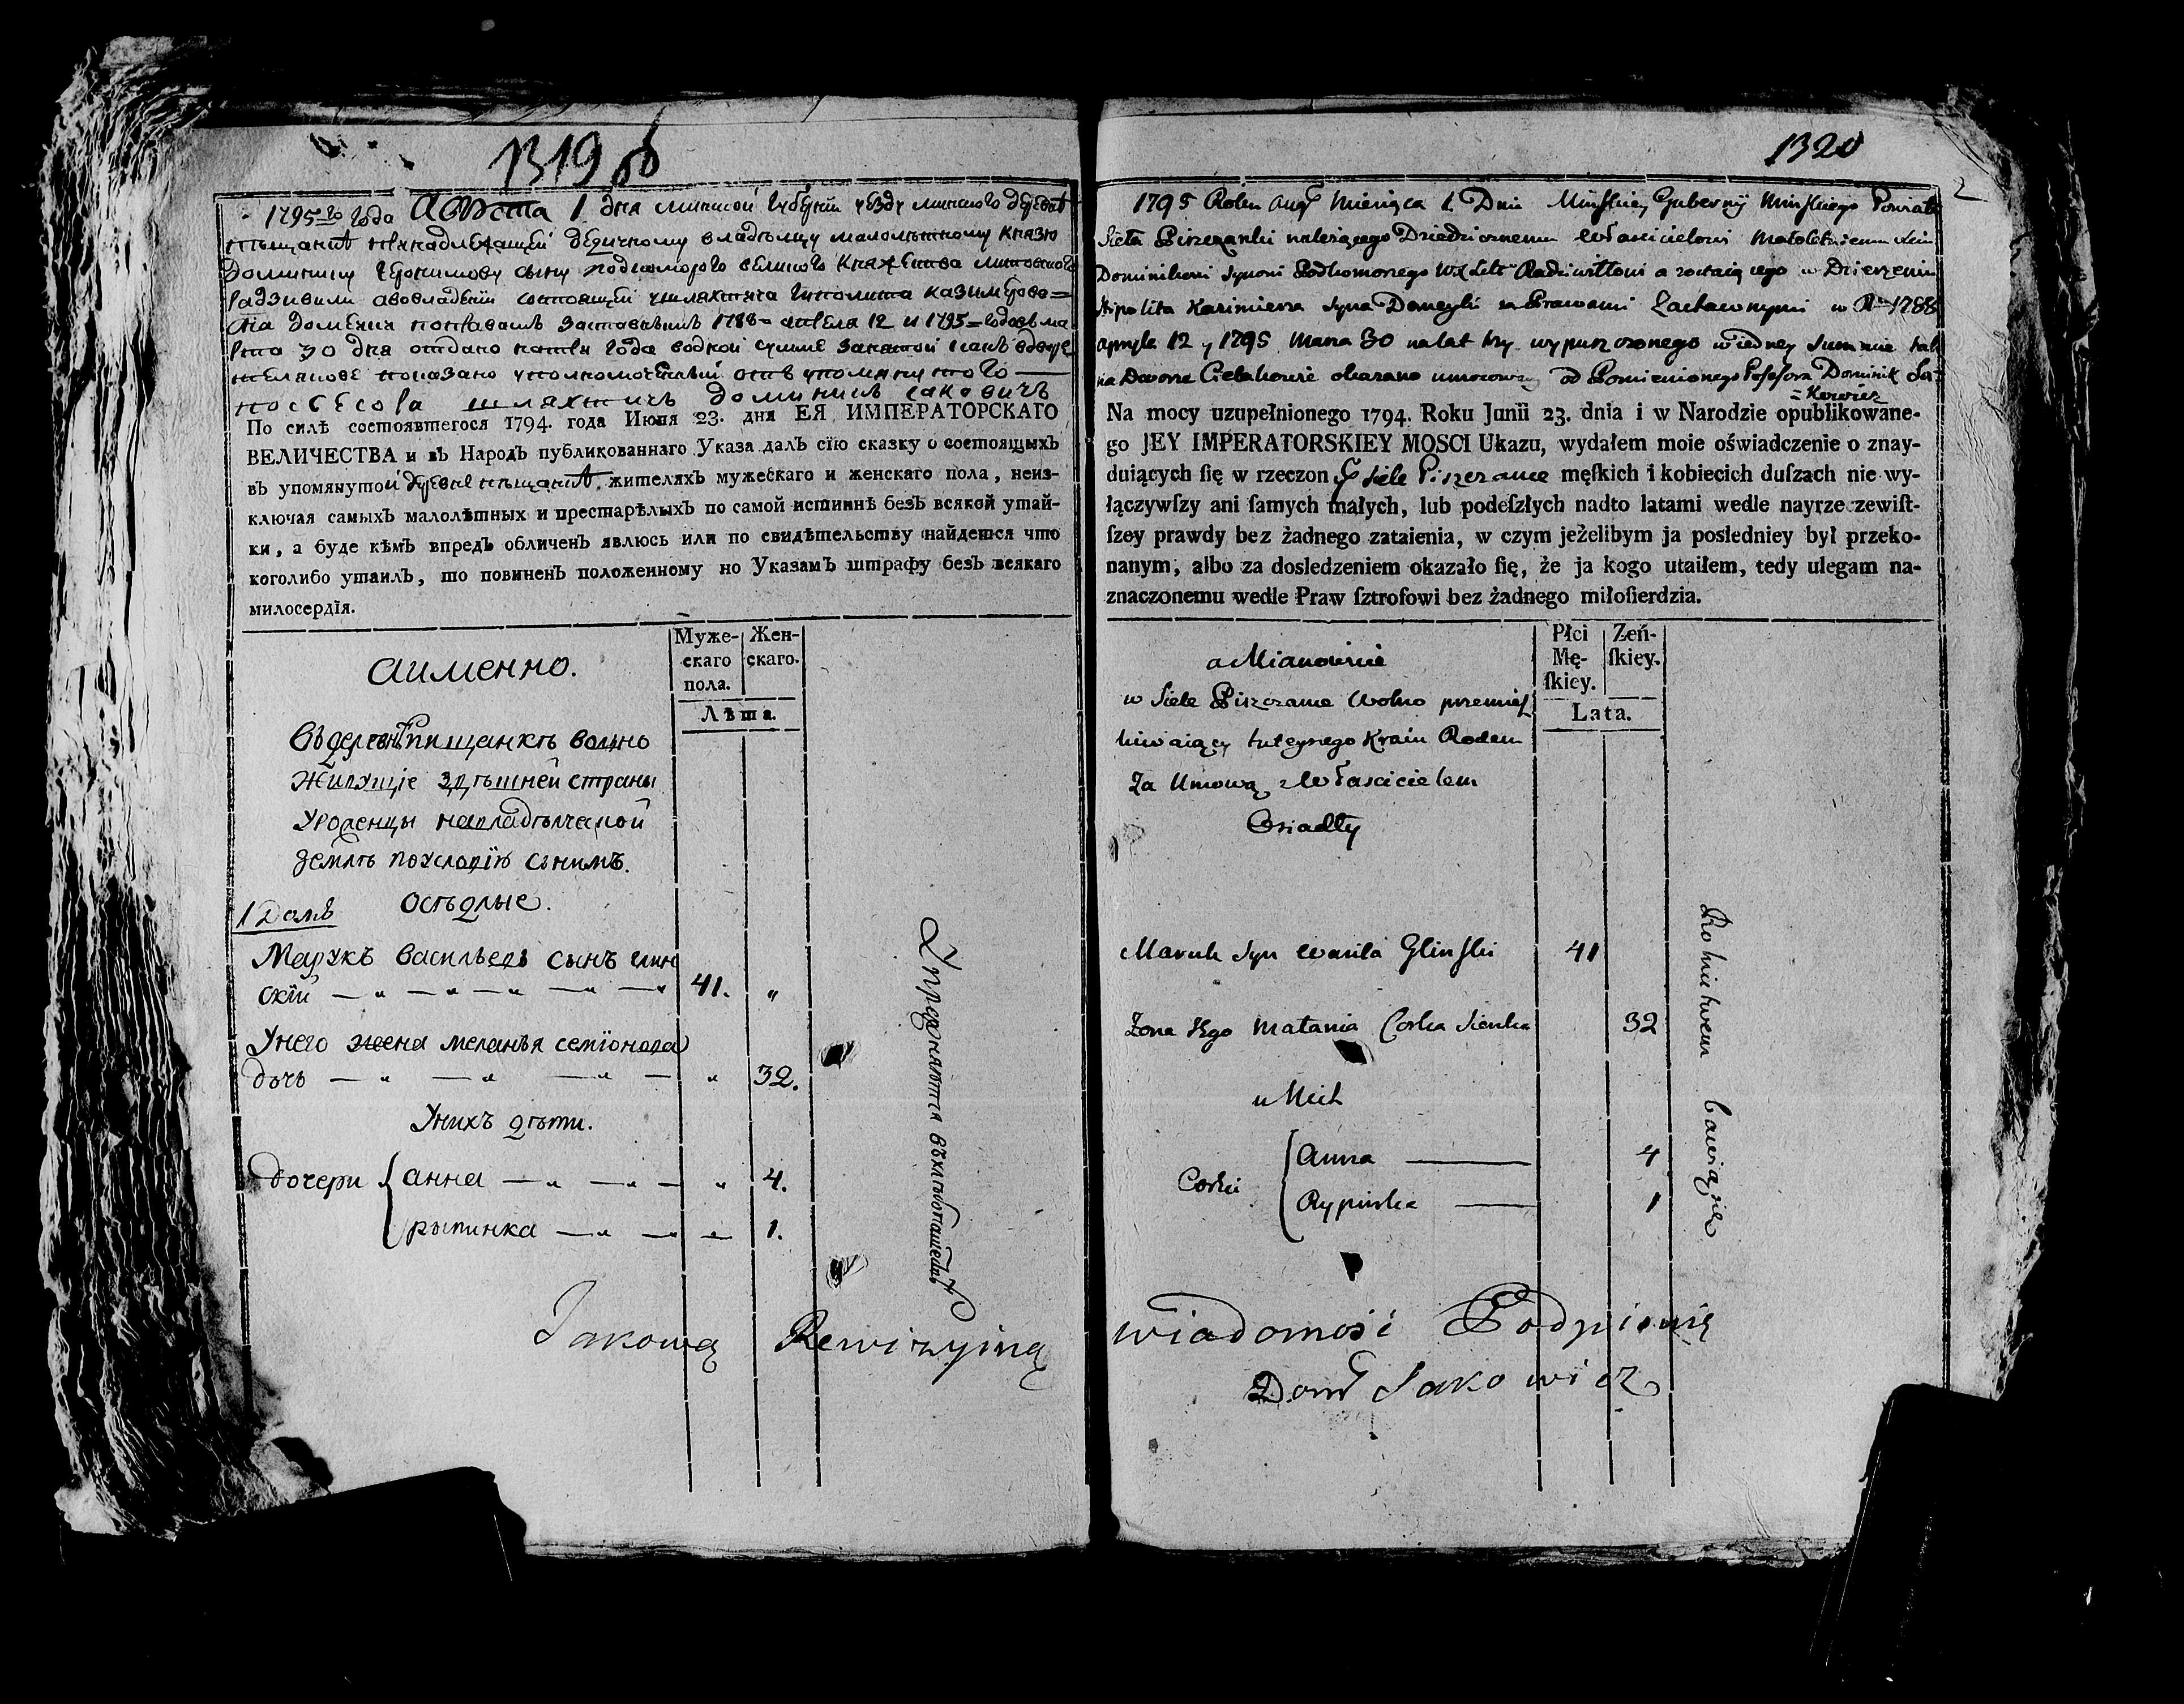 1319 об
1795-го года Августа 1 дня минской губернии уезду минского деревне
пещанке принадлежащей дедичному владельцу малолетному князю
Доминику Иеронимову сыну подкоморого великого княжества литовского
Радзивилу авовладении состоящей шляхтича Ипполита Казимерова=
на поправамъ заставнымъ 1788-го апреля 12 и 1795-годовъ ма
рта 30 дня отдано натри года водной сумме
показано уполномоченный отъ упомянутого
поссесора шляхтичъ доминикъ сакович
По силѣ состоявшегося 1794. года Июня 23. дня ЕЯ ИМПЕРАТОРСКАГО
ВЕЛИЧЕСТВА и въ Народъ публикованнаго Указа далъ сїю сказку о состоящыхъ
въ упомянутой деревне пещанке жителяхъ мужескаго и женскаго пола, неиз-
ключая самыхъ малолѣтныхъ и престарѣлыхъ по самой истиннѣ безъ всякой утай-
ки, а буде кѣмъ впредъ обличенъ явлюсь или по свидѣтельству найдется что
коголибо утаилъ, то повиненъ положенному по Указамъ штрафу безъ всякаго
милосердїя.
Муже-скаго пола. Жен-скаго.
Лѣта.
аименно.
Въдеревнѣ пищанкѣ вольно
Живущіе здѣшней страны
Уроженцы навладѣлческой
Землѣ поусловїю сънимъ.
Осѣдлые.
1 Домъ
Марукъ васильевъ сынъ глин
скїй — „ — „ — „ — „ — „ 41. „
Унего жена меланья семїонова
дочь — „ — „ — „ — „ 32.
Унихъ дѣти.
дочери { анна — „ — „ — „ 4.
рыпинка — „ — „ — 1.
Упражняются въхлѣбопашествѣ
Takową Rewizyiną
1320
2
1795 Roku Aug Miesiąca 1 Dnia Minskiey Gubernij Minskiego Powiatu
Sieła Piszczanki należącego Dziedzicznemu Włascicielowi Małoletniemu
Dominikowi synowi Podkomorzego WX Lit Radziwiłłowi a zostaiącego w Dzierzeniu
Hipolita Kazimierza syna Prawami Zastawnymi w R 1788
Apryla 12 y 1795 Marca 30 na lat trzy wypuszczonego w iedney summie
na Dworze okazano umocowany od Pomienionego Possessora Dominik Sa-
-kowicz
Na mocy uzupełnionego 1794. Roku Junii 23. dnia i w Narodzie opublikowane-
go JEY IMPERATORSKIEY MOSCI Ukazu, wydałem moie oświadczenie o znay-
duiących ſię w rzeczon Siele Piszczance męſkich i kobiecich duſzach nie wy-
łączywſzy ani ſamych małych, lub podeſzłych nadto latami wedle nayrzeczewiſt-
ſzey prawdy bez żadnego zataienia, w czym jeżelibym ja posledniey był przeko-
nanym, albo za dosledzeniem okazało ſię, że ja kogo utaiłem, tedy ulegam na-
znaczonemu wedle Praw ſztrofowi bez żadnego miłoſierdzia.
Płci Mę-ſkiey. Zeń-ſkiey.
Lata.
a Mianowicie
w Siele Piszczance Wolno przemiesz
kiwaiący tuteysznego Kraiu Rodem
Za Umową z Włascicielem
Osiadły
Maruk Syn Wasila Glinski 41
Zona Jego Małania Corka Sienka 32
u Nich
Corki { Anna 4
Rypinka 1
Rolnictwem bawią się
wiadomość Podpisuię
Domk Sakowicz